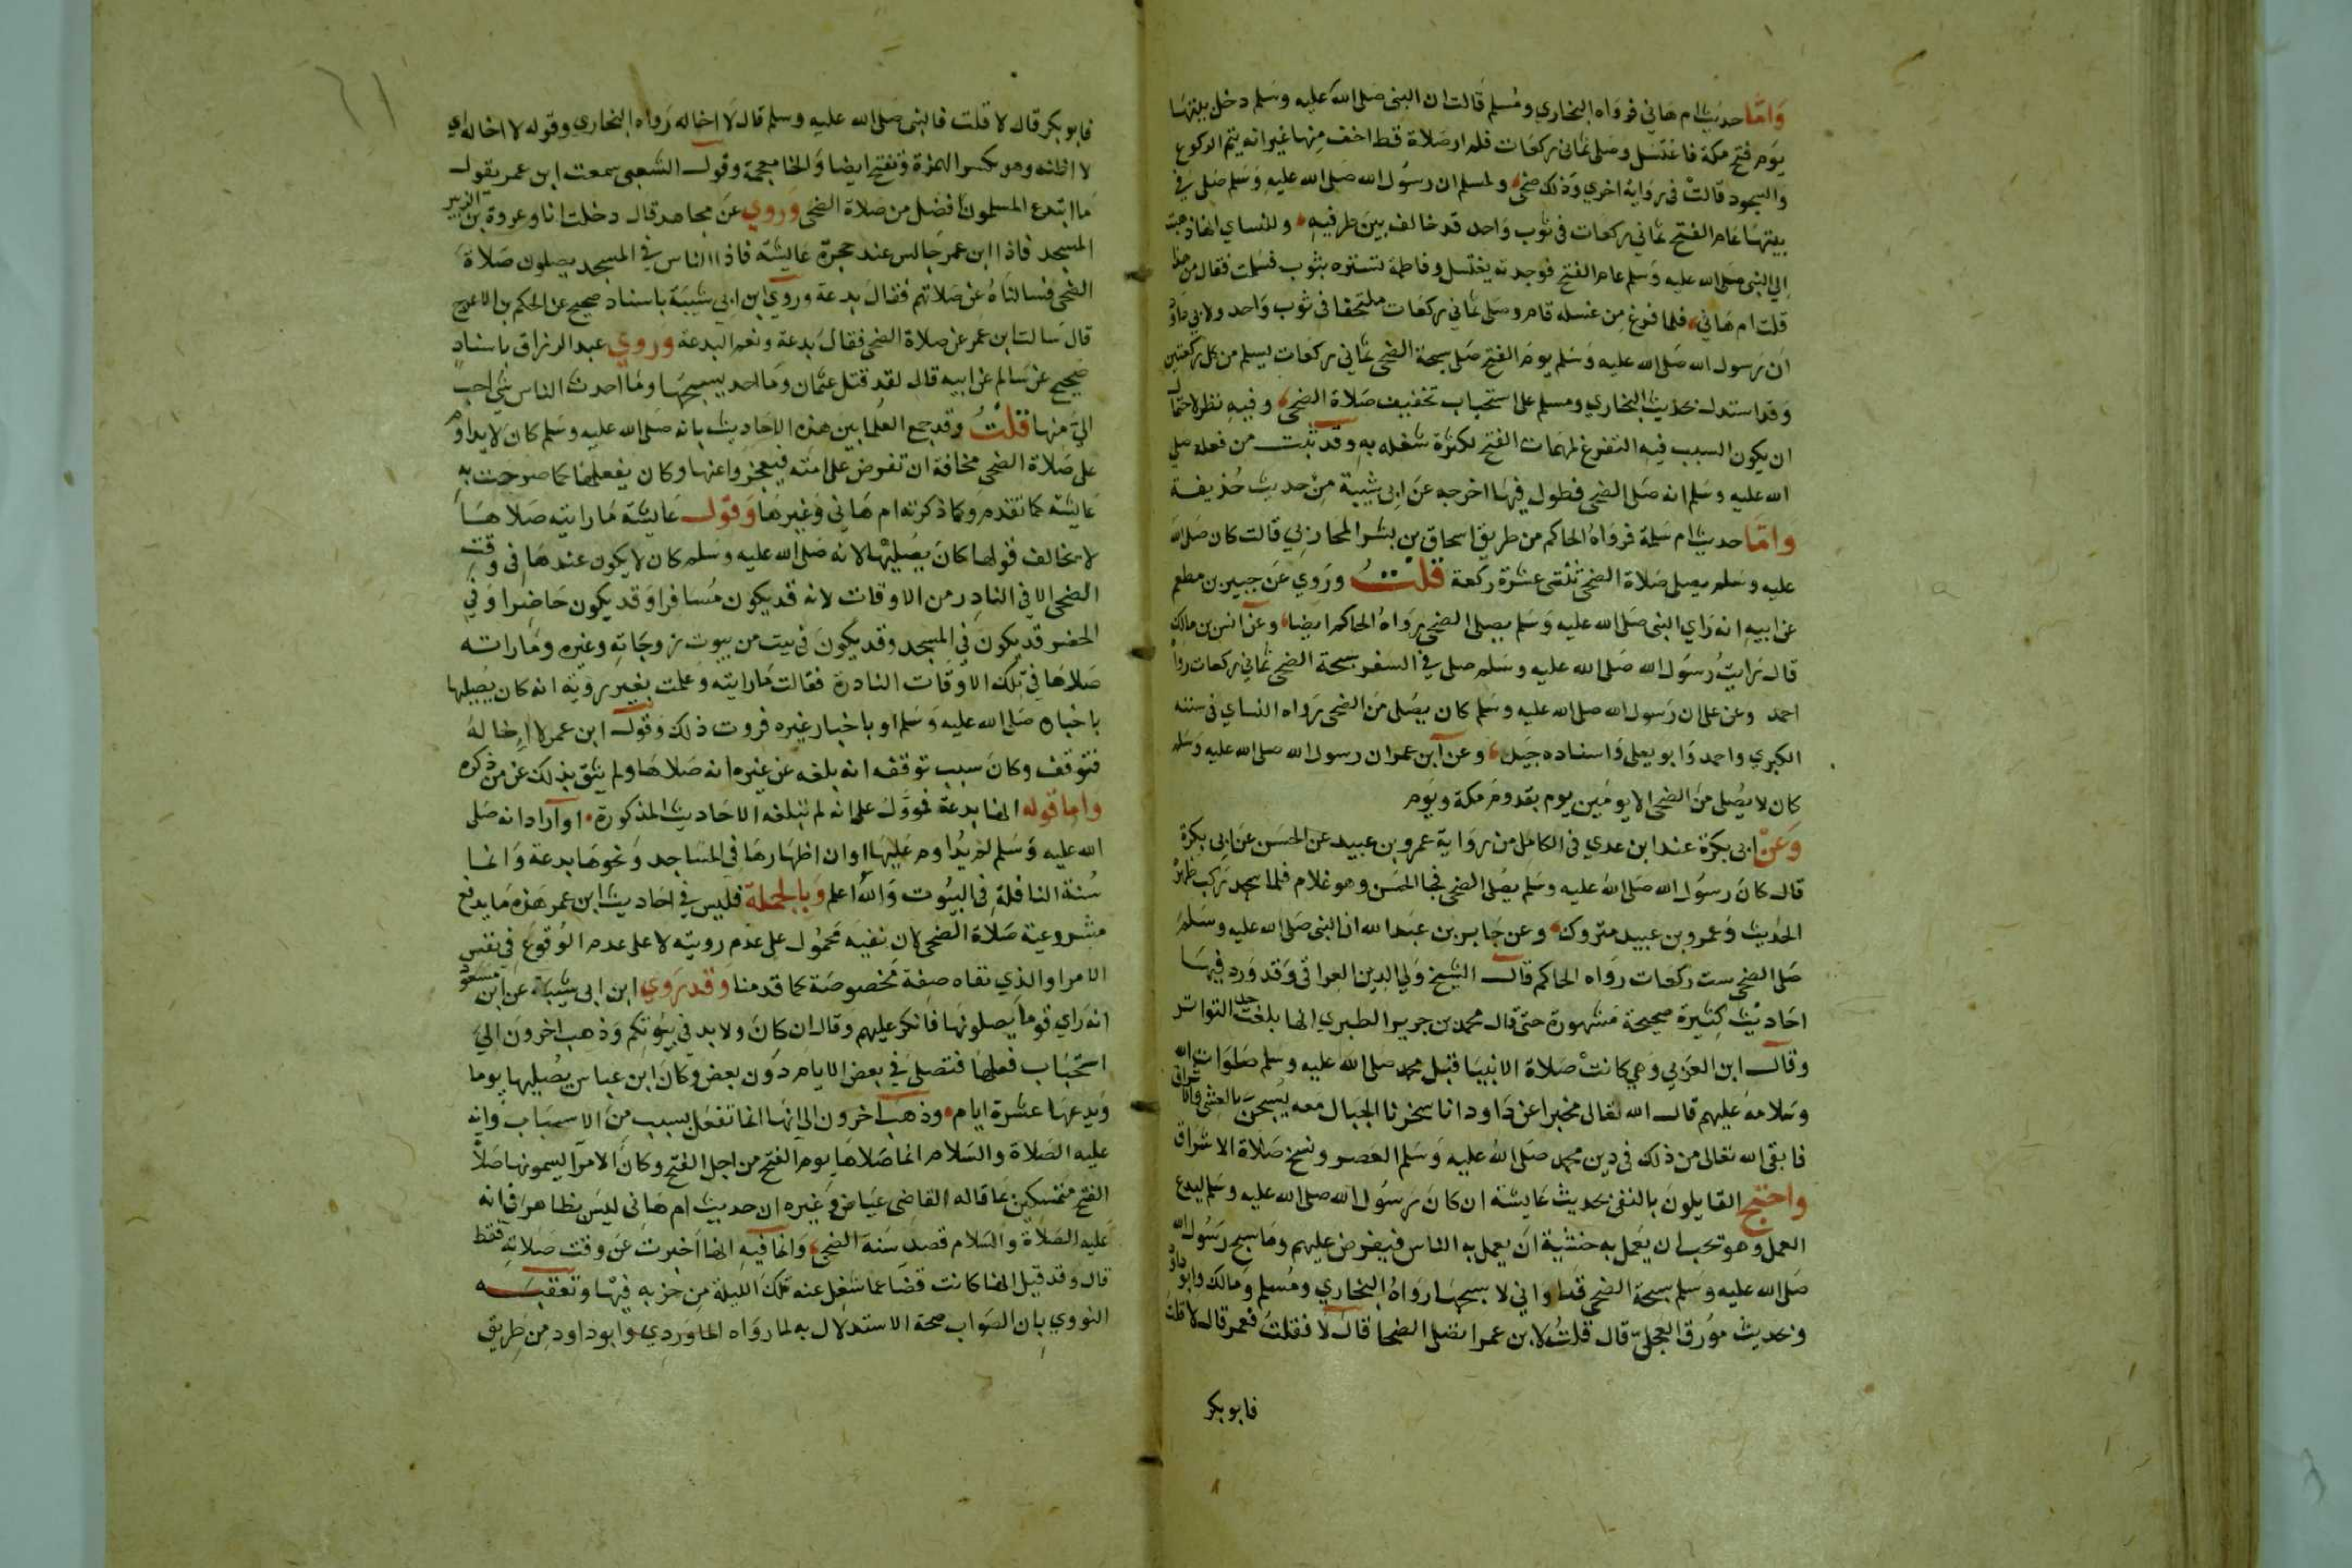 وَامّا حديث ام هاني فرواه البخاري ومسلم قالت ان النبي صلى الله عليه وسلم دخل بيتها
يوم فتح مكة فاغتسل وصلى ثماني ركعات فلم ار صلاة قط اخف منها غير انه يتم الركوع
والسجود قالت في رواية اخري وذلك ضحى ولمسلم ان رسول الله صلى الله عليه وسلم صلى في
بيتها عام الفتح ثماني ركعات في ثوب واحد قد خالف بين طرفيه وللنساي انها ذهبت
الي النبي صلى الله عليه وسلم عام الفتح فوجدته يغتسل وفاطمة تستره بثوب فسلمت فقال من هذا
قلت ام هاني فلما فرغ من غسله قام وصلى ثماني ركعات ملتحفا في ثوب واحد ولابي داود
ان رسول الله صلى الله عليه وسلم يوم الفتح صلى سبحة الضحى ثماني ركعات يسلم من كل ركعتين
وقد استدل بحديث البخاري ومسلم على استحباب تخفيف صلاة الضحى وفيه نظر لاحتمال
ان يكون السبب فيه التفرغ لمهمات الفتح لكثرة شغله به وقد ثبت من فعله صلى
الله عليه وسلم انه صلى الضحى فطول فيها اخرجه عن ابي شيبة من حديث حذيفة
وامّا حديث ام سلمة فرواه الحاكم من طريق اسحاق بن بشر المحاربي قالت كان صلى الله
عليه وسلم يصلي صلاة الضحى ثنتي عشرة ركعة قلت وروي عن جبير بن مطعم
عن ابيه انه راي النبي صلى الله عليه وسلم يصلي الضحى رواه الحاكم ايضا وعن انس بن مالك
قال رايت رسول الله صلى الله عليه وسلم صلى في السفر سبحة الضحى ثماني ركعات رواه
احمد وعن على ان رسول الله صلى الله عليه وسلم كان يصلى من الضحى رواه النساي في سننه
الكبري واحمد وابو يعلى واسناده جيد وعن ابن عمر ان رسول الله صلى الله عليه وسلم
كان لا يصلى من الضحى الا يومين يوم يقدوم مكة ويوم
وعن ابي بكرة عند ابن عدي في الكامل من رواية عمرو بن عبيد عن الحسن عن ابي بكرة
قال كان رسول الله صلى الله عليه وسلم يصلى الضحى فجا الحسن وهو غلام فلما سجد ركب ظهره
الحديث وعمرو بن عبيد متروك وعن جابر بن عبد الله ان النبي صلى الله عليه وسلم
صلى الضحى ست ركعات رواه الحاكم قال الشيخ ولي الدين العراقي وقد ورد فيها
احاديث كثيرة صحيحة مشهورة حتى قال محمد بن جرير الطبري انها بلغت حد التواتر
وقال ابن العربي وهي كانت صلاة الانبيا قبل محمد صلى الله عليه وسلم صلوات الله
وسلامه عليهم قال الله تعالى مخبرا عن داود انا سخرنا الجبال معه يسبحن بالعشى والاشراق
فابقى الله تعالى من ذلك في دين محمد صلى الله عليه وسلم العصر ونسخ صلاة الاشراق
واحتج القايلون بالنفى بحديث عايشة ان كان رسول الله صلى الله عليه وسلم ليدع
العمل وهو تحب ان يعمل به خشية ان يعمل به الناس فيفرض عليهم وما سبح رسول الله
صلى الله عليه وسلم سبحة الضحى قط واني لا سبحها رواه البخاري ومسلم ومالك وابو داود
وبحديث مورق العجلي قال قلت لابن عمر اتصلى الضحا قال لا فقلت فعمر قال لا قلت
فابو بكر
٦١
فابو بكر قال لا قلت فالنبي صلى الله عليه وسلم قال لا اخاله رواه البخاري وقوله لا اخاله اي
لا اظنه وهو بكسر الهمزة وتفتح ايضا والخا معجمة وقول الشعبي سمعت ابن عمر يقول
ما ابتدع المسلمون افضل من صلاة الضحى وروي عن مجاهد قال دخلت انا وعروة بن الزبير
المسجد فاذا ابن عمر جالس عند حجرة عايشة فاذا الناس في المسجد يصلون صلاة
الضحى فسالناه عن صلاتهم فقال بدعة وروي ابن ابي شيبة باسناد صحيح عن الحكم بن الاعرج
قال سالت ابن عمر عن صلاة الضحى فقال بدعة ونعم البدعة وروي عبد الرزاق باسناد
صحيح عن سالم عن ابيه قال لقد قتل عثمان وما احد يسبحها وما احدث الناس شي احب
الي منها قلت وقد جمع العلما بين هذه الاحاديث بانه صلى الله عليه وسلم كان لا يداوم
على صلاة الضحى مخافة ان تفرض على امته فيعجزوا عنها وكان يفعلها كما صرحت به
عايشة كما تقدم وكما ذكرته ام هاني وغيرها وقول عايشة ما رايته صلاها
لا يخالف قولها كان يصليها لانه صلى الله عليه وسلم كان لا يكون عندها في وقت
الضحى الا في النادر من الاوقات لانه قد يكون مسافرا وقد يكون حاضرا وفي
الحضر قد يكون في المسجد وقد يكون في بيت من بيوت زوجاته وغيره وما راته
صلاها في تلك الاوقات النادرة فقالت ما رايته وعلمت بغير روية انه كان يصليها
باخباره صلى الله عليه وسلم او باخبار غيره فروت ذلك وقول ابن عمر لا اخاله
فتوقف وكان سبب توقفه انه بلغه عن غيره انه صلاها ولم يثق بذلك عن من ذكره
واما قوله انها بدعة فمؤول على انه لم تبلغه الاحاديث المذكورة او اراد انه صلى
الله عليه وسلم لم يداوم عليها او ان اظهارها في المساجد ونحوها بدعة وانما
سنة النافلة في البيوت والله اعلم وبالجملة فليس في احاديث ابن عمر هذه ما يدفع
مشروعية صلاة الضحى لان نفيه محمول على عدم رويته لا على عدم الوقوع في نفس
الامر او الذي نفاه صفة مخصوصة كما قدمنا وقد روي ابن ابي شيبة عن ابن مسعود
انه راي قوما يصلونها فانكر عليهم وقال ان كان ولا بد في بيوتكم وذهب اخرون الي
استحباب فعلها فتصلى في بعض الايام دون بعض وكان ابن عباس يصليها يوما
ويدعها عشرة ايام وذهب اخرون الي انها انما تفعل بسبب من الاسباب وانه
عليه الصلاة والسلام انما صلاها يوم الفتح من اجل الفتح وكان الامرا يسمونها صلاة
الفتح متمسكين بما قاله القاضي عياض وغيره ان حديث ام هاني ليس بظاهر في انه
عليه الصلاة والسلام قصد سنة الضحى وانما فيه انها اخبرت عن وقت صلاته فقط
قال وقد قيل انها كانت قضا عما شغل عنه تلك الليلة من حزبه فيها وتعقبه
النووي بان الصواب صحة الاستدلال به لما رواه الماوردي وابو داود من طريق